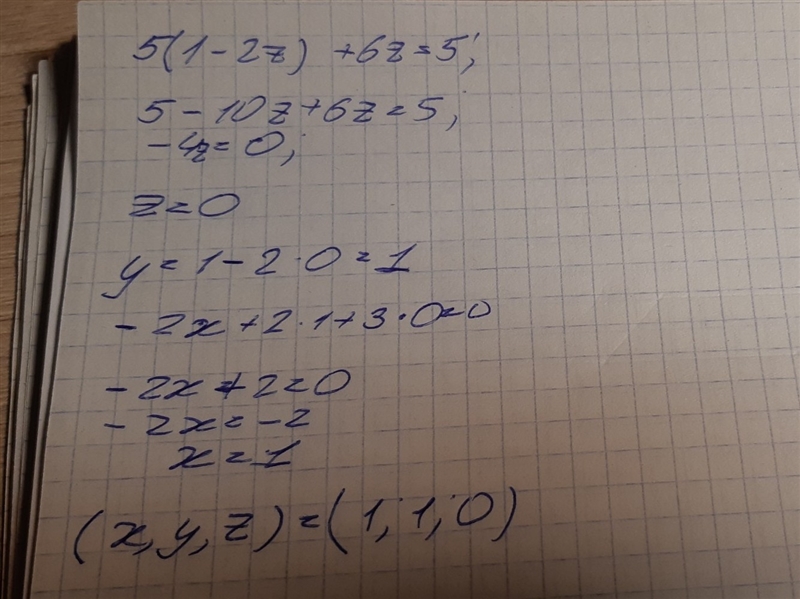 5(1-2z) +6z=5;
5-10z+6z=5;
-4z=0;
z=0
y=1-2·0=1
-2x+2·1+3·0=0
-2x+2=0
-2x=-2
x=1
(x,y,z)=(1;1;0)